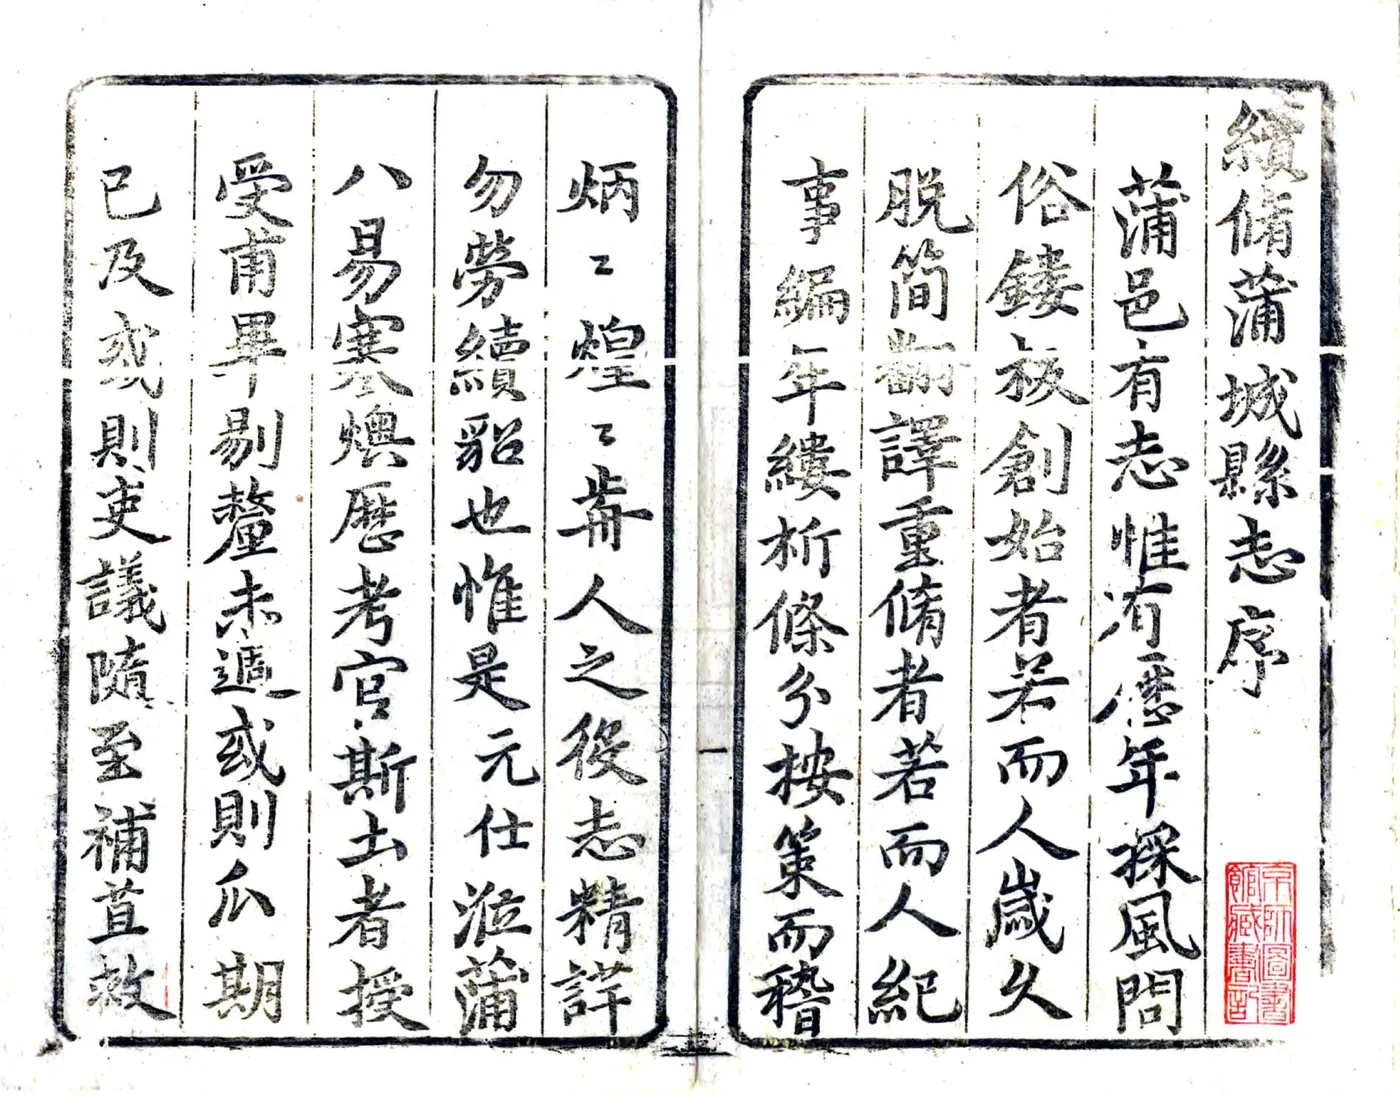 續脩蒲城縣志序
蒲邑有志惟有歷年採風問
俗鏤板創始者若而人歲久
脱簡翻譯重脩者若而人紀
事編年縷析條分按策而稽
炳〻煌〻前人之役志精詳
勿勞續貂也惟是元仕涖蒲
八易寒燠歷考官斯土者授
受甫畢剔釐未遍或則瓜期
已及或則吏議隨至補苴救
京師圖書
館藏書記
一